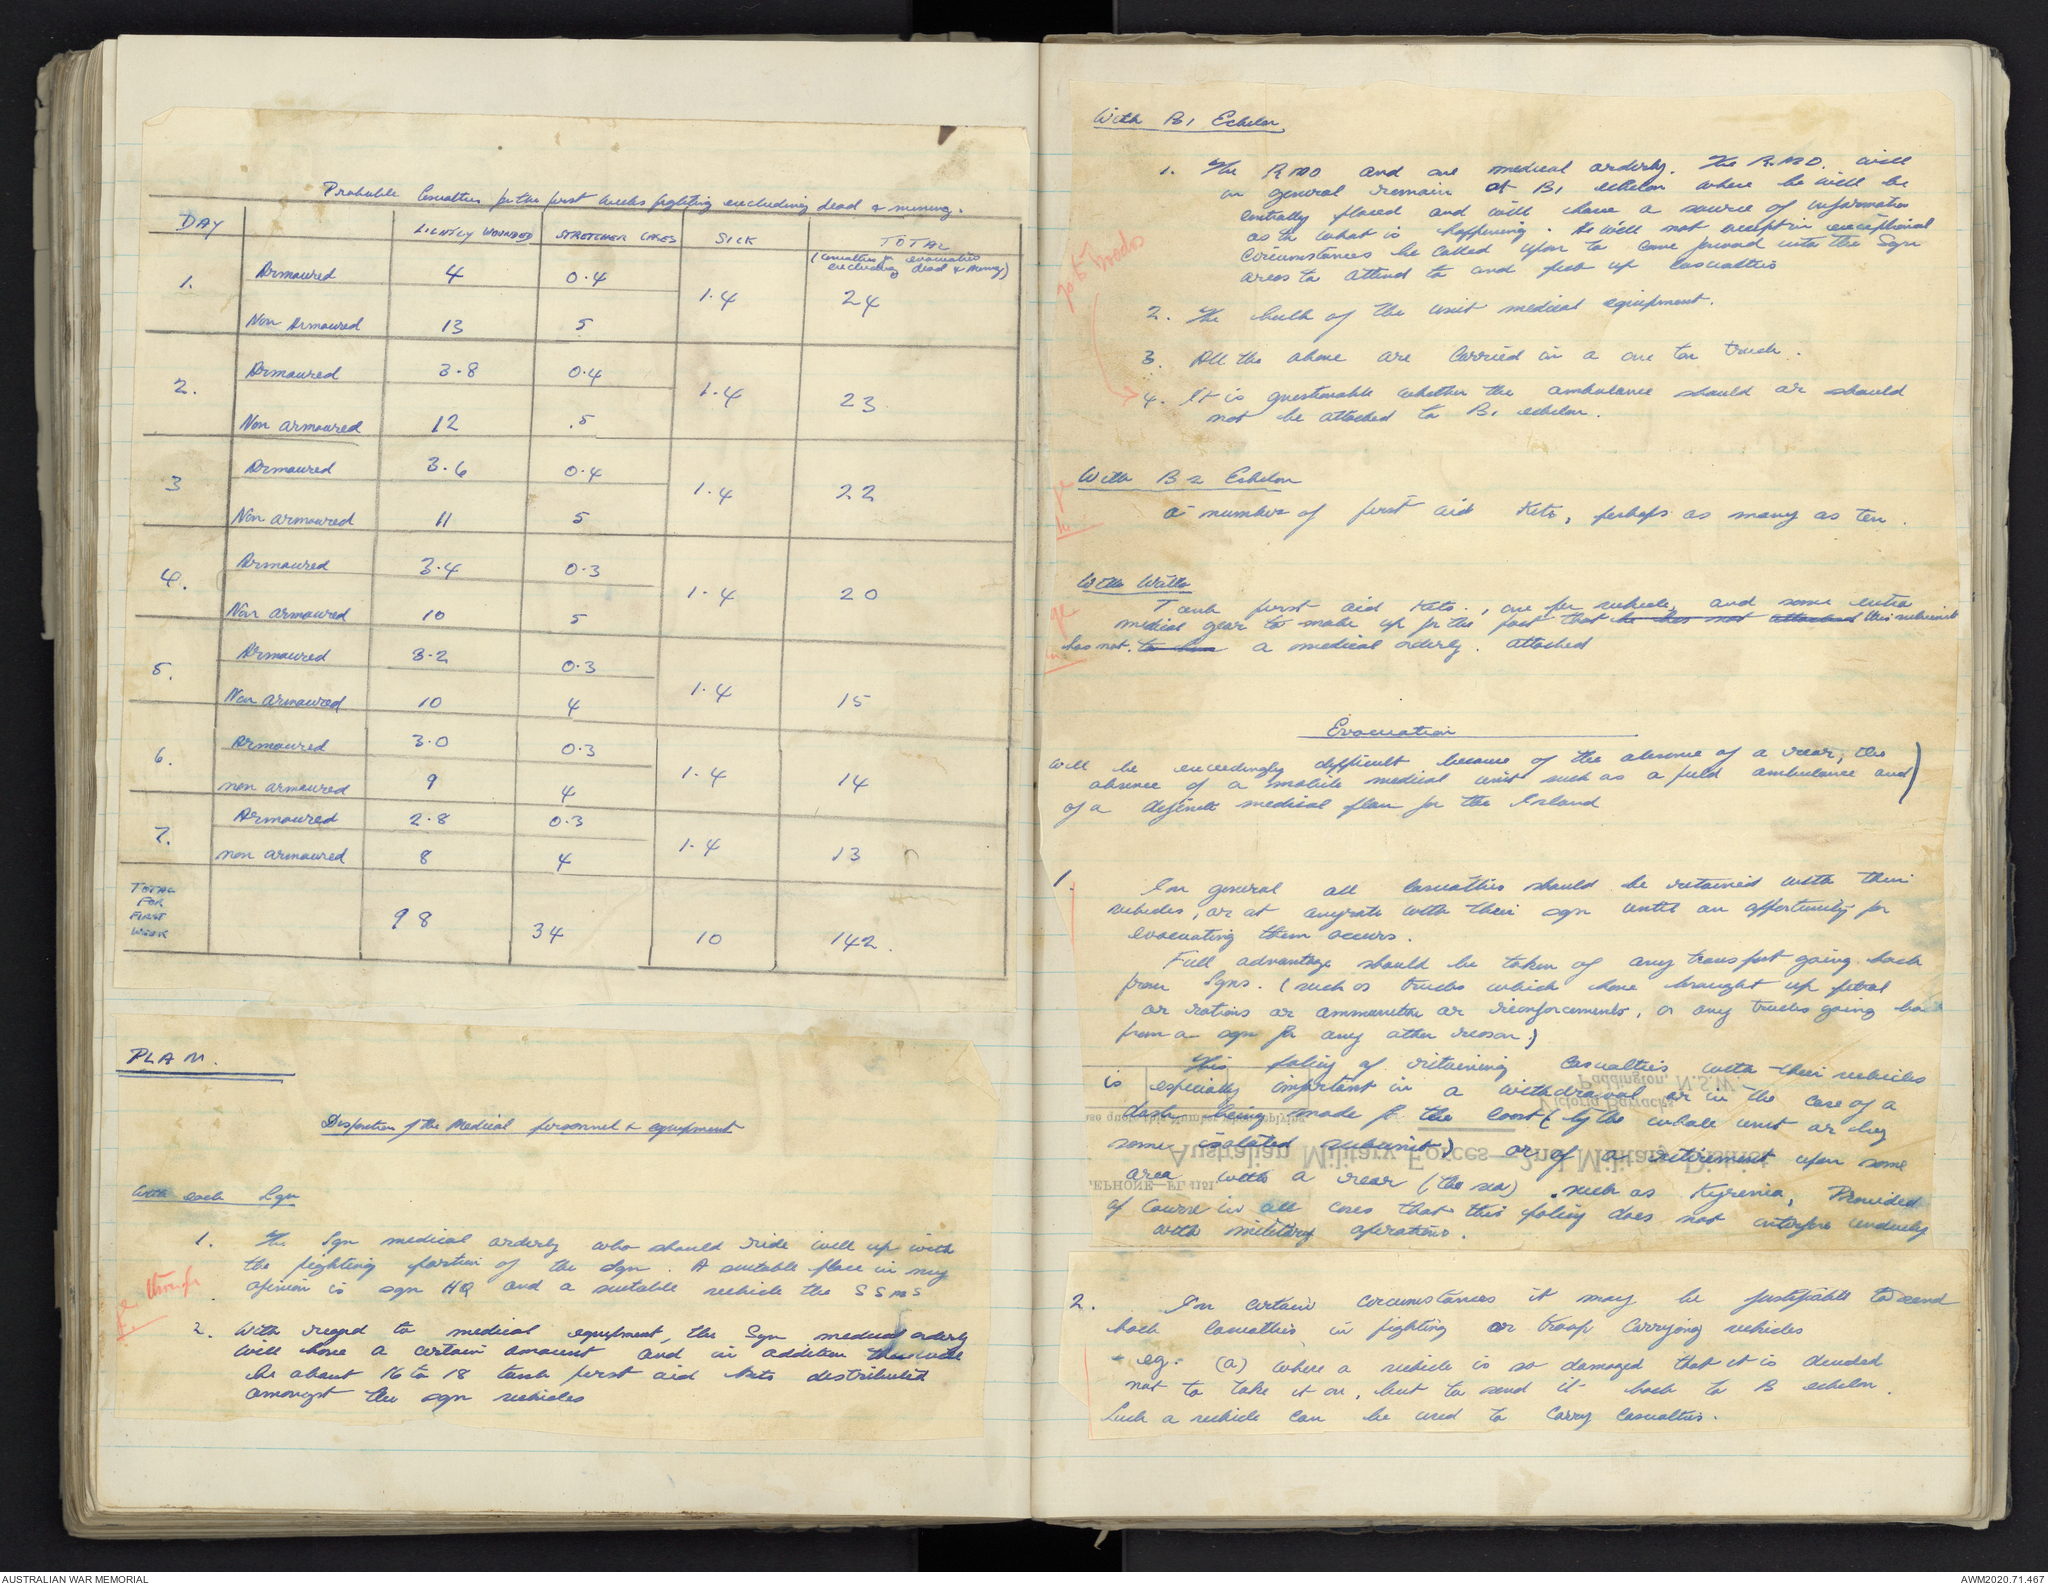 Probable Casualties for the first weeks fighting excluding dead & missing.
DAY
LIGHTLY WOUNDED STRETCHER CASES SICK TOTAL
(casualties for evacuation
excluding dead & missing)
1. Armoured 4 0.4 1.4 24
Non Armoured 13 5
2. Armoured 3.8 0.4 1.4 23
Non armoured 12 .5
3 Armoured 3.6 0.4 1.4 22
Non armoured 11 5
4. Armoured 3.4 0.3 1.4 20
Non armoured 10 5
5. Armoured 3.2 0.3 1.4 15
Non armoured 10 4
6. Armoured 3.0 0.3 1.4 14
non armoured 9 4
7. Armoured 2.8 0.3 1.4 13
non armoured 8 4
TOTAL
FOR
FIRST
WEEK
98 34 10 142.
PLAN.
Disposition of the Medical personnel & equipment
With each Sqn
1. The Sqn medical orderly who should ride well up with
the fighting portion of the Sqn. A suitable place in my
opinion is sqn HQ and a suitable vehicle the SSMS
2. With regard to medical equipment, the Sqn medical orderly
will have a certain amount and in addition there will
be about 16 to 18 tank first aid kits distributed
amongst the sqn vehicles
With B1 Echelon
1. The RMO and one medical orderly. The R.M.O. will
in general remain at B1 echelon where he will be
centrally placed and will have a source of information
as to what is happening. He will not except in exceptional
circumstances be called upon to come forward into the Sqn
areas to attend to and pick up casualties
2. The bulk of the unit medical equipment.
3. All the above are carried in a one ton truck.
4. It is questionable whether the ambulance should or should
not be attached to B1 echelon.
With B2 Echelon
a number of first aid kits, perhaps as many as ten.
With
Tank first aid kits, one per vehicle, and some extra
medical gear to make up for the fact that he has not attached this subunit
has not to have a medical orderly. attached
Evacuation
will be exceedingly difficult because of the absence of a rear, the
absence of a mobile medical unit such as a field ambulance and
of a definite medical plan for the Island
1. In general all casualties should be retained with their
vehicles, or at anyrate with their sqn until an opportunity for
evacuating them occurs.
Full advantage should be taken of any transport going back
from Sqns. (such as trucks which have brought up petrol
or rations or ammunition or reinforcements, or any trucks going
from a sqn for any other reason.)
This policy of retaining casualties with their vehicles
is especially important in a withdrawal or in the case of a
dash being made for the coast (by the whole unit or by
some isolated subunit) or of a retirement upon some
area with a rear (the sea) such as Kyrenia, Provided
of course in all cases that this policy does not interfere unduely
with military operations.
Paddington, N.S.W.
Victoria Barracks
Australian Military Forces—2nd Military District
2. In certain circumstances it may be justifiable to send
back casualties in fighting or troop carrying vehicles
eg. (a) where a vehicle is so damaged that it is decided
not to take it on, but to send it back to B echelon.
Such a vehicle can be used to carry casualties.
AUSTRALIAN WAR MEMORIAL
AWM2020.71.467